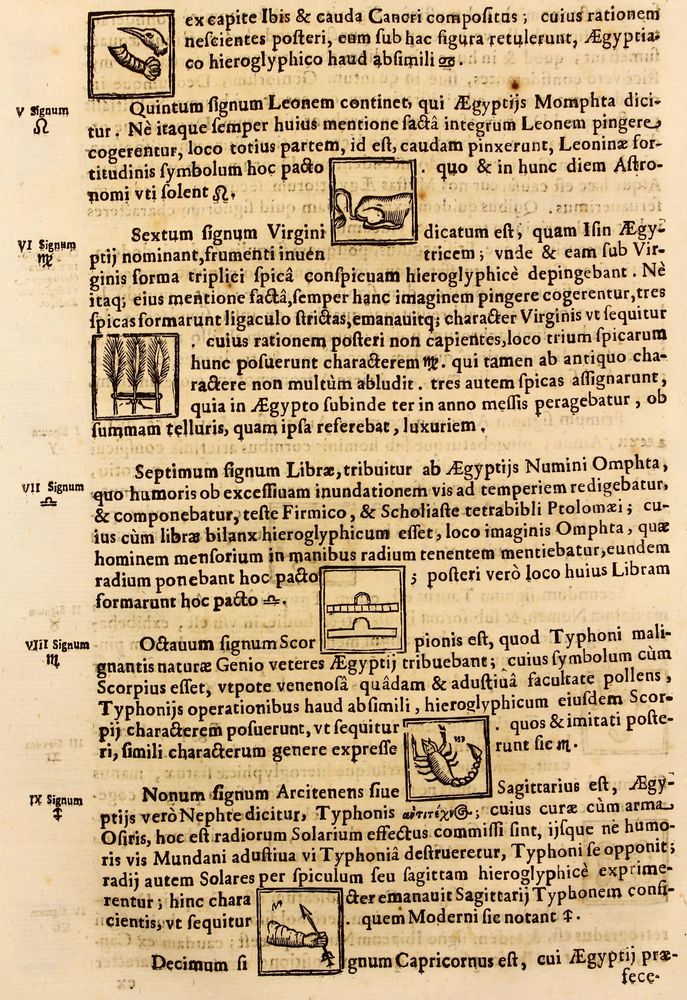 ex capite Ibis & cauda Cancri compositus; cuius rationem
nescientes posteri, eum sub hac figura retulerunt, Ægyptia-
co hieroglyphico haud absimili ♋.
V Signum
♌
Quintum signum Leonem continet, qui Ægyptijs Momphta dici-
tur. Nè itaque semper huius mentione factâ integrum Leonem pingere
cogerentur, loco totius partem, id est, caudam pinxerunt, Leoninæ for-
titudinis symbolum hoc pacto . quo & in hunc diem Astro-
nomi vti solent ♌.
VI Signum
♍
Sextum signum Virgini dicatum est, quam Isin Ægy-
ptij nominant, frumenti inuen tricem; vnde & eam sub Vir-
ginis forma triplici spicâ conspicuam hieroglyphicè depingebant. Nè
itaq; eius mentione factâ, semper hanc imaginem pingere cogerentur, tres
spicas formarunt ligaculo strictas, emanauitq; character Virginis vt sequitur
. cuius rationem posteri non capientes, loco trium spicarum
hunc posuerunt characterem ♍. qui tamen ab antiquo cha-
ractere non multùm abludit. tres autem spicas assignarunt,
quia in Ægypto subinde ter in anno messis peragebatur, ob
summam telluris, quam ipsa referebat, luxuriem.
VII Signum
♎
Septimum signum Libræ, tribuitur ab Ægyptijs Numini Omphta,
quo humoris ob excessiuam inundationem vis ad temperiem redigebatur,
& componebatur, teste Firmico, & Scholiaste tetrabibli Ptolomæi; cu-
ius cùm libræ bilanx hieroglyphicum esset, loco imaginis Omphta, quæ
hominem mensorium in manibus radium tenentem mentiebatur, eundem
radium ponebant hoc pacto ; posteri verò loco huius Libram
formarunt hoc pacto ♎.
VIII Signum
♏
Octauum signum Scor pionis est, quod Typhoni mali-
gnantis naturæ Genio veteres Ægyptij tribuebant; cuius symbolum cùm
Scorpius esset, vtpote venenosâ quâdam & adustiuâ facultate pollens,
Typhonijs operationibus haud absimili, hieroglyphicum eiusdem Scor-
pij characterem posuerunt, vt sequitur . quos & imitati poste-
ri, simili characterum genere expresse runt sic ♏.
IX Signum
♐
Nonum signum Arcitenens siue Sagittarius est, Ægy-
ptijs verò Nephte dicitur, Typhonis ἀντιτέχνος; cuius curæ cùm arma
Osiris, hoc est radiorum Solarium effectus commissi sint, ijsque nè humo-
ris vis Mundani adustiua vi Typhoniâ destrueretur, Typhoni se opponit;
radij autem Solares per spiculum seu sagittam hieroglyphicè exprime-
rentur; hinc chara cter emanauit Sagittarij Typhonem confi-
cientis, vt sequitur . quem Moderni sic notant ♐.
Decimum si gnum Capricornus est, cui Ægyptij præ-
fece-